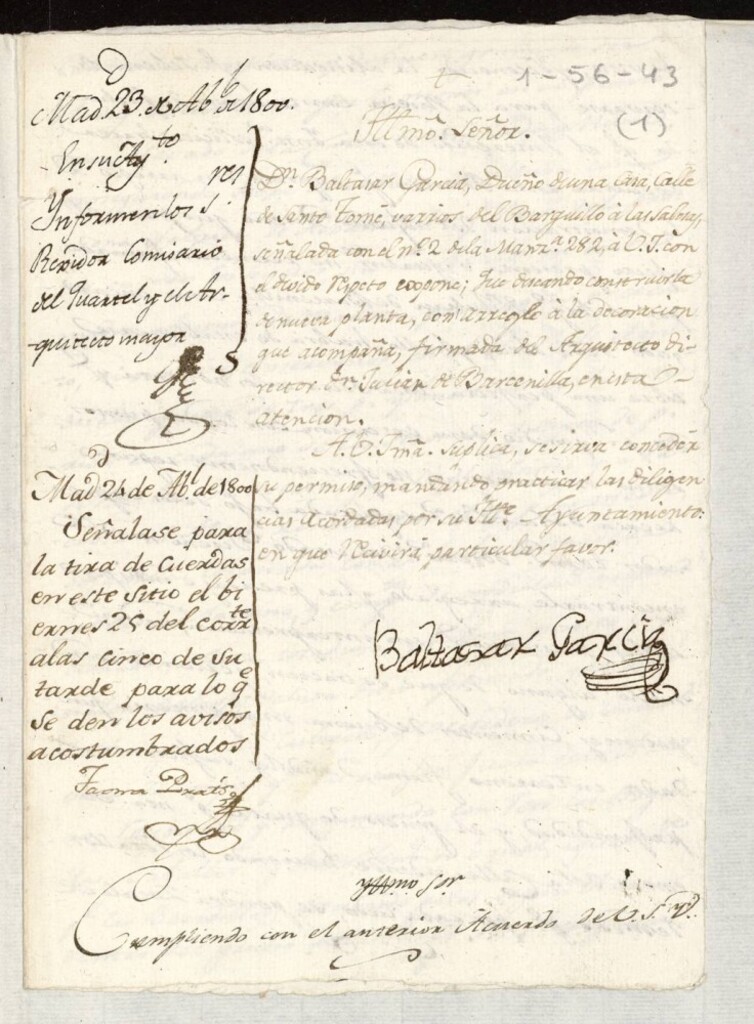 1-56-43
(1)
Mad.d 23 de Ab.l de 1800.
En su Ay.to
Ynformen los S.res
Rexidor Comisario
del Quartel y el Ar-
quitecto mayor
Mad.d 24 de Ab.l de 1800
Señalase para
la tira de Cuerdas
en este sitio el bi
ernes 25 del corr.te
alas cinco de su
tarde para lo q.e
se den los avisos
acostumbrados
Illmô. Señor.
D.n Baltasar Garcia, Dueño de una Casa, calle
de Santo Tomé, varrios del Barquillo â las Salesas,
señalada con el n.º 2 de la Manz.a 282, â V.I. con
el devido respeto expone; Que deseando construirla
de nueva planta, con arreglo â la decoracion
que acompaña, firmada del Arquitecto di-
rector D.n Julian de Barcenilla, en esta
atencion.
A V. Ima. suplica, se sirva conceder
su permiso, mandando practicar las diligen
cias acordadas por su Ill.e Ayuntamiento:
en que recivirá particular favor.
Baltasar Garcia
Yttmo Sor
Cumpliendo con el anterior Acuerdo de V. S. Y.